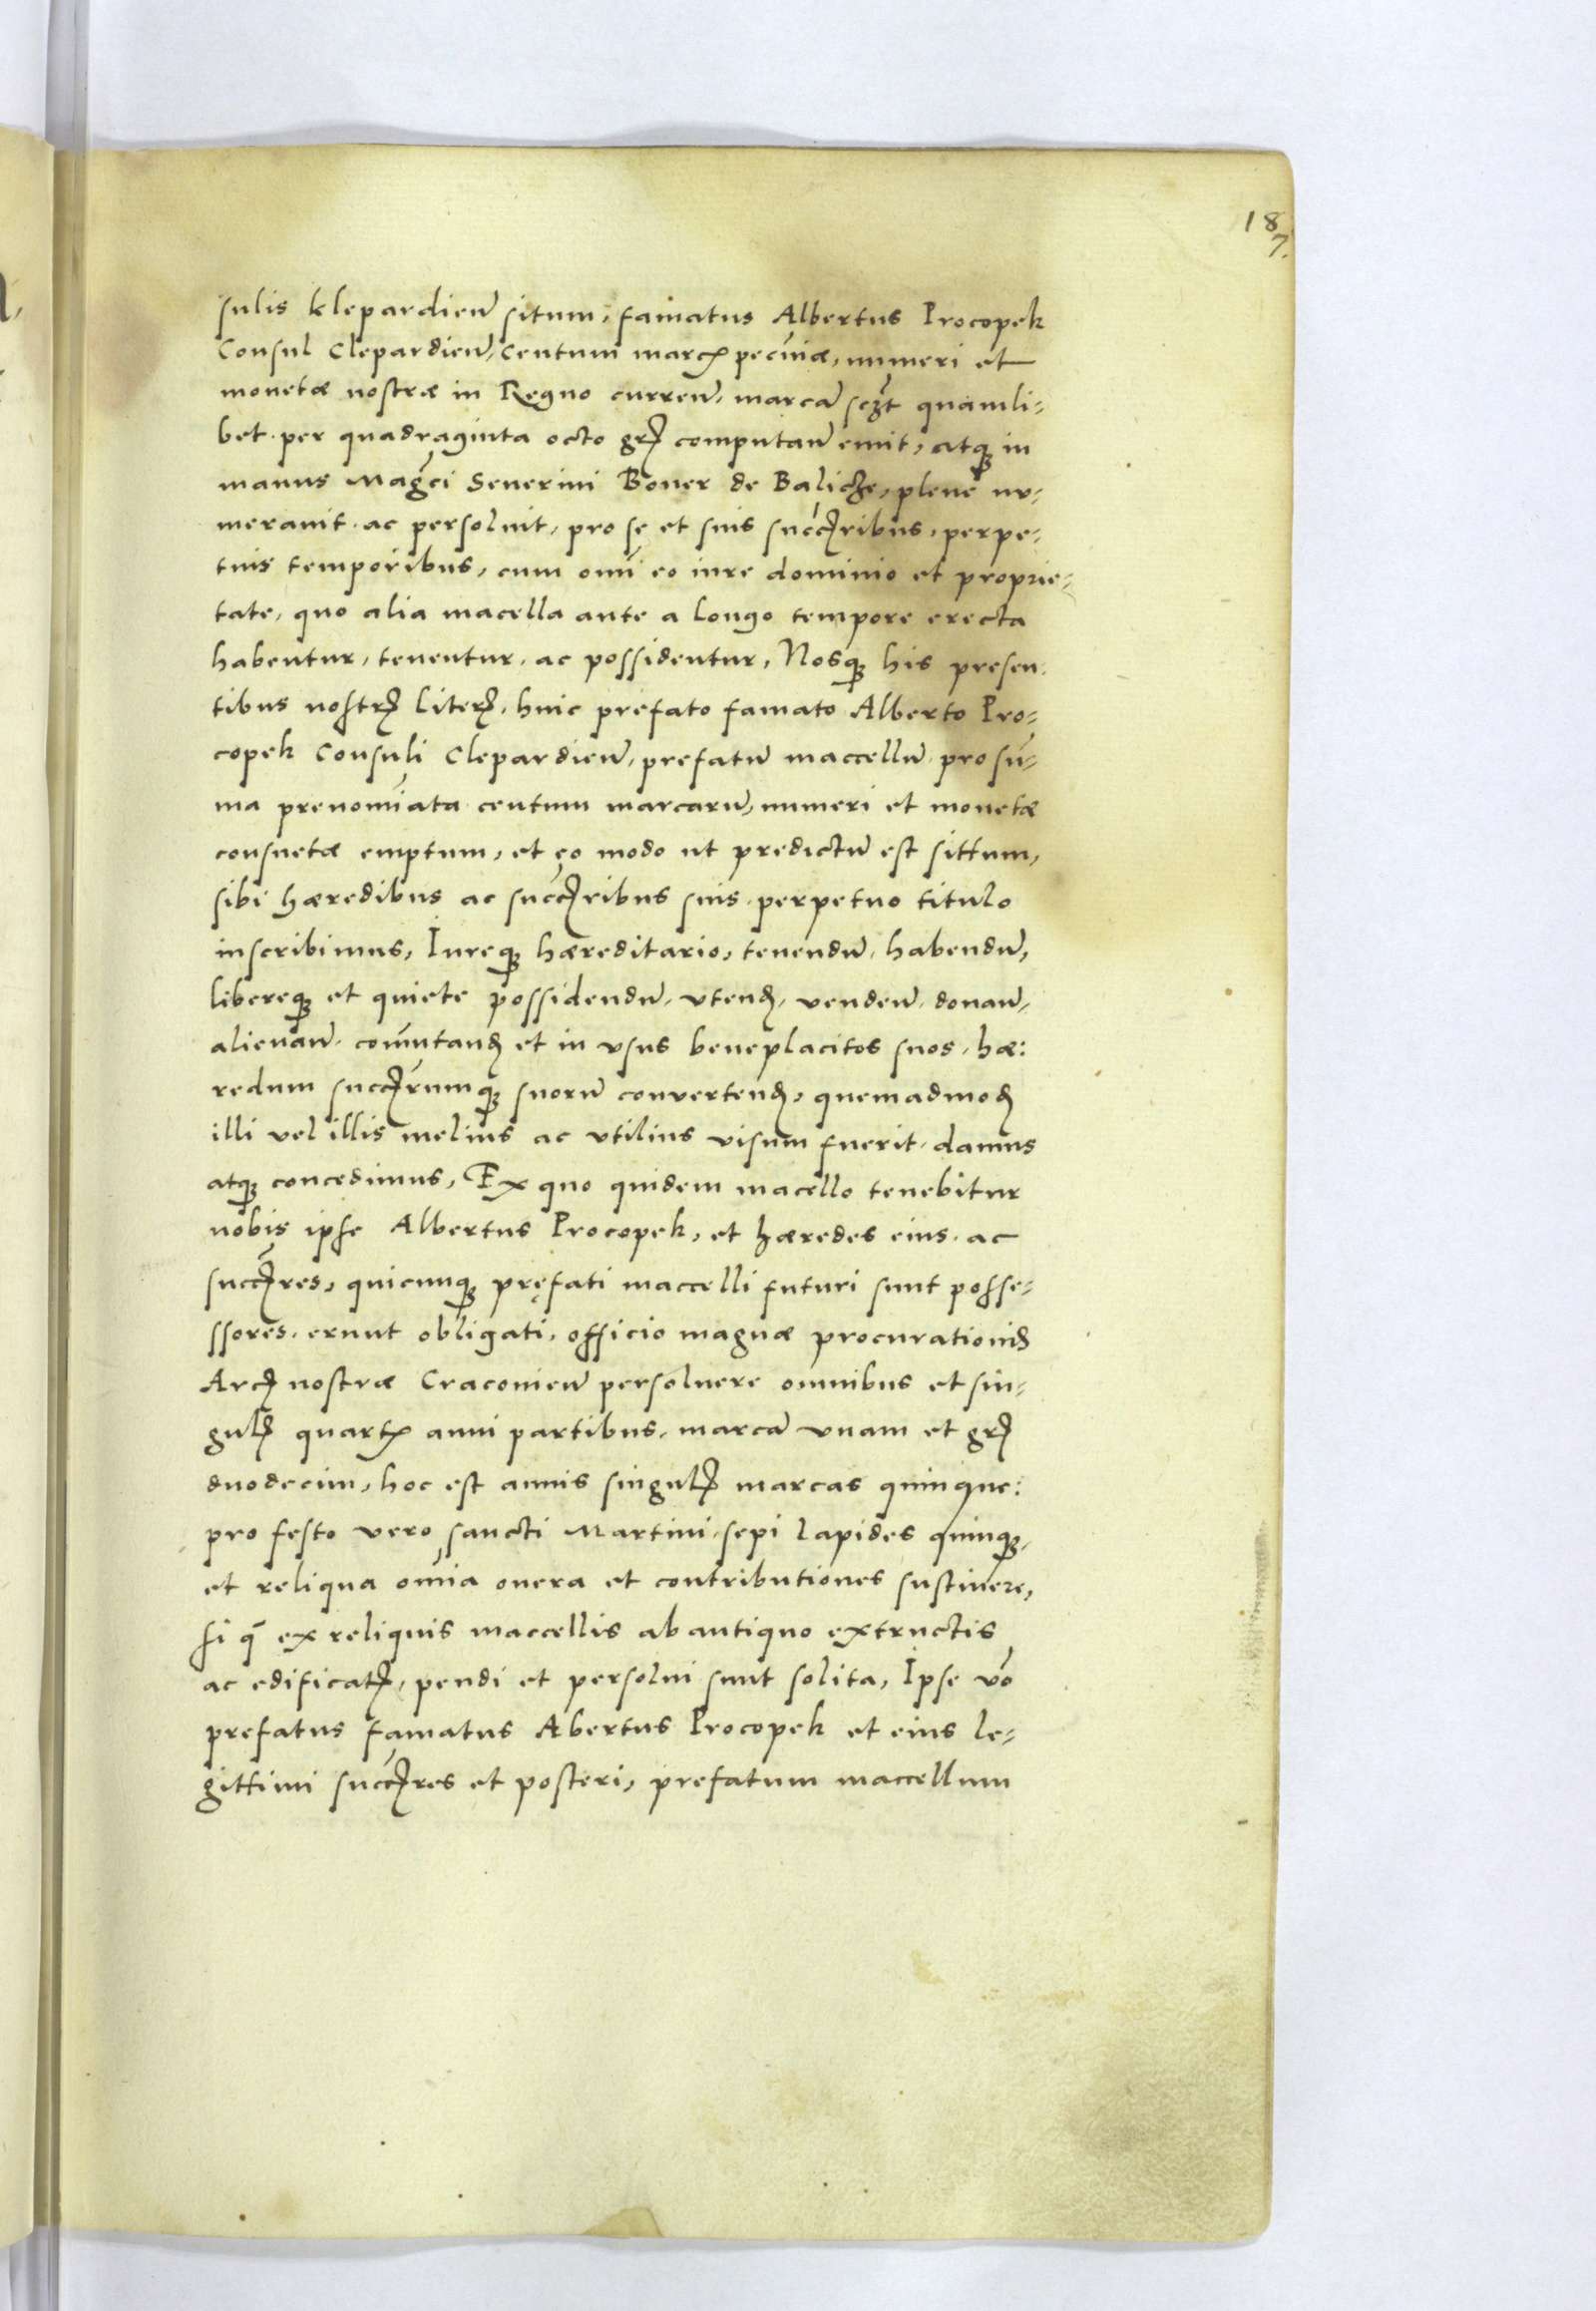 18
7.
sulis klepardieñ situm, famatus Albertus Procopek
Consul Clepardieñ, centum marcꝝ pecuniæ, numeri et
monetæ nostræ in Regno curreñ, marcã sczt quamli-
bet per quadraginta octo grꝭ computañ emit, atqꝫ in
manus Magci Seuerini Boner de Balicze, plene nu-
merauit ac persoluit, pro se et suis succꝭribus, perpe-
tuis temporibus, cum omi eo iure dominio et proprie-
tate, quo alia macella ante a longo tempore erecta
habentur, tenentur, ac possidentur, Nosqꝫ his presen
tibus nostrꝭ literꝭ, huic prefato famato Alberto Pro-
copek Consuli Clepardieñ, prefatũ maccellũ pro sũ-
ma prenomiata centum marcarũ, numeri et monetæ
consuetæ emptum, et eo modo ut predictũ est sittum,
sibi hæredibus ac succꝭribus suis perpetuo titulo
inscribimus, Iureqꝫ hæreditario, tenendũ, habendũ,
libereqꝫ et quiete possidendũ, vtenꝺ, vendeñ, donañ,
alienañ, comutanꝺ et in vsus beneplacitos suos, hæ:
redum succꝭrumqꝫ suorũ convertenꝺ, quemadmoꝺ
illi vel illis melius ac vtilius visum fuerit, damus
atqꝫ concedimus, Ex quo quidem macello tenebitur
nobis ipse Albertus Procopek, et hæredes eius ac
succꝭres, quicunqꝫ pręfati maccelli futuri sunt posse-
ssores, erunt obligati, officio magnæ procurationiꝭ
Arcꝭ nostræ Cracouieñ persoluere omnibus et sin-
gulꝭ quartꝝ anni partibus, marcã vnam et grꝭ
duodecim, hoc est annis singulꝭ marcas quinque:
pro festo vero sancti Martini, sepi lapides quinqꝫ,
et reliqua omia onera et contributiones sustinere,
si q̃ ex reliquis maccellis ab antiquo extructis
ac edificatꝭ, pendi et persolui sunt solita, Ipse vo
prefatus famatus Abertus Procopek et eius le-
gittimi succꝭres et posteri, prefatum maccellum